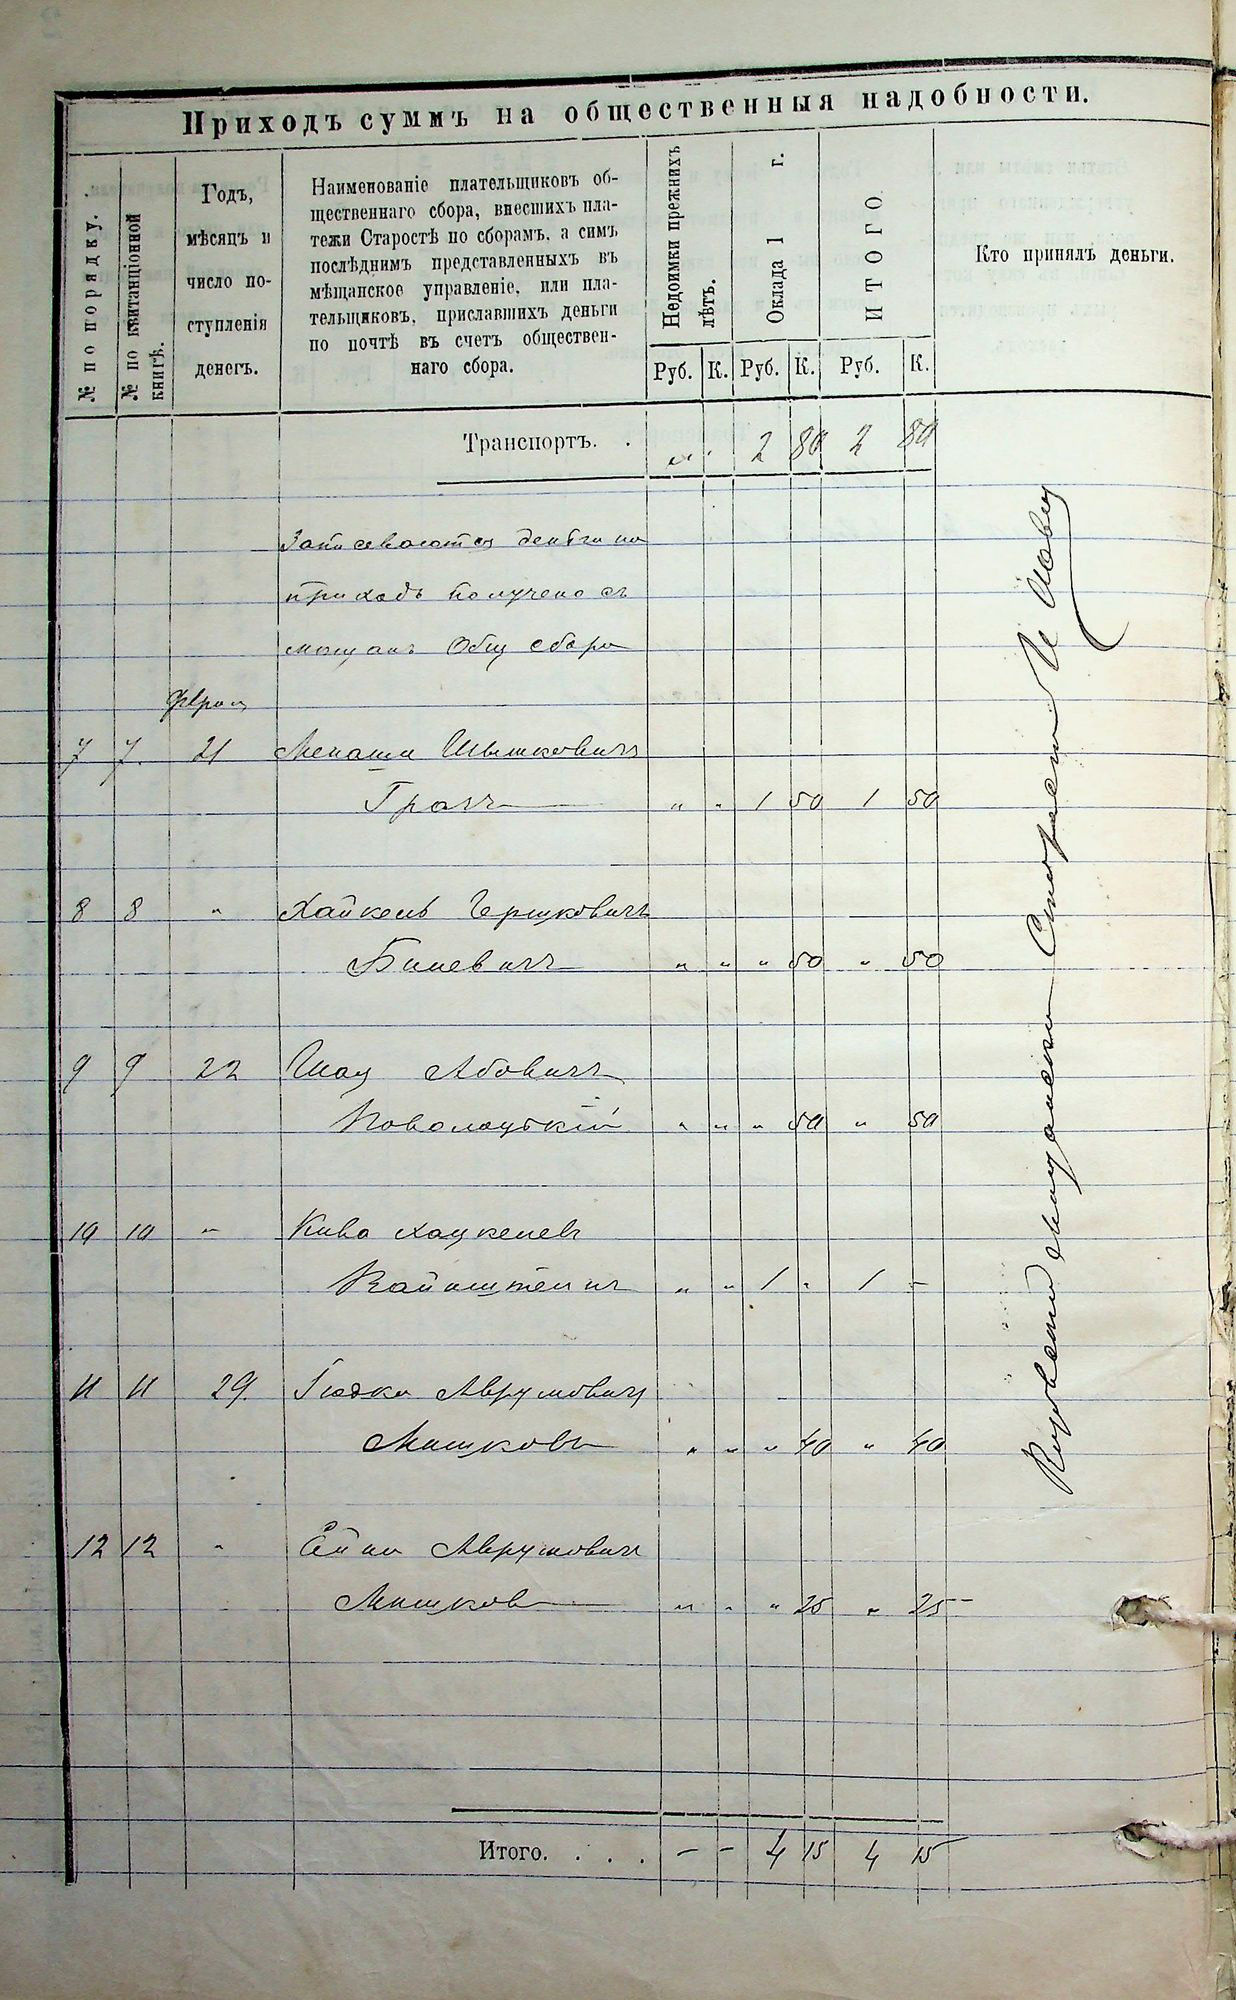 Приходъ суммъ на общественныя надобности.
№ по порядку.
№ по квитанціонной книгѣ.
Годъ,
мѣсяцъ и
число по-
ступленія
денегъ.
Наименованіе плательщиковъ об-
щественнаго сбора, внесшихъ пла-
тежи Старостѣ по сборамъ, а симъ
послѣднимъ представленныхъ въ
мѣщанское управленіе, или пла-
тельщиковъ, приславшихъ деньги
по почтѣ въ счетъ обществен-
наго сбора.
Недоимки прежнихъ
лѣтъ.
Оклада 1 г.
ИТОГО
Кто принялъ деньги.
Руб. К. Руб. К. Руб. К.
Транспортъ. . „ . 2 80 2 80
Записываются деньги на
приходъ получено съ
мещанъ Общ сбора
7 7. 21 Менаши Ицковичъ
Грачъ „ „ 1 50 1 50
8 8 „ Хацкель Гершковичъ
Билевичъ „ „ „ 50 „ 50
9 9 22 Абовичъ
Новолоцкій „ „ „ 50 „ 50
10 10 „ Кива Хацкелев
Вайнштеинъ „ „ 1 „ 1 –
11 11 29 Аврумовичъ
Машковъ „ „ „ 40 „ 40
12 12 „ Аврумовичъ
Машков „ „ „ 25 „ 25 –
Итого. . . . – – 4 15 4 15
Мещански Староста